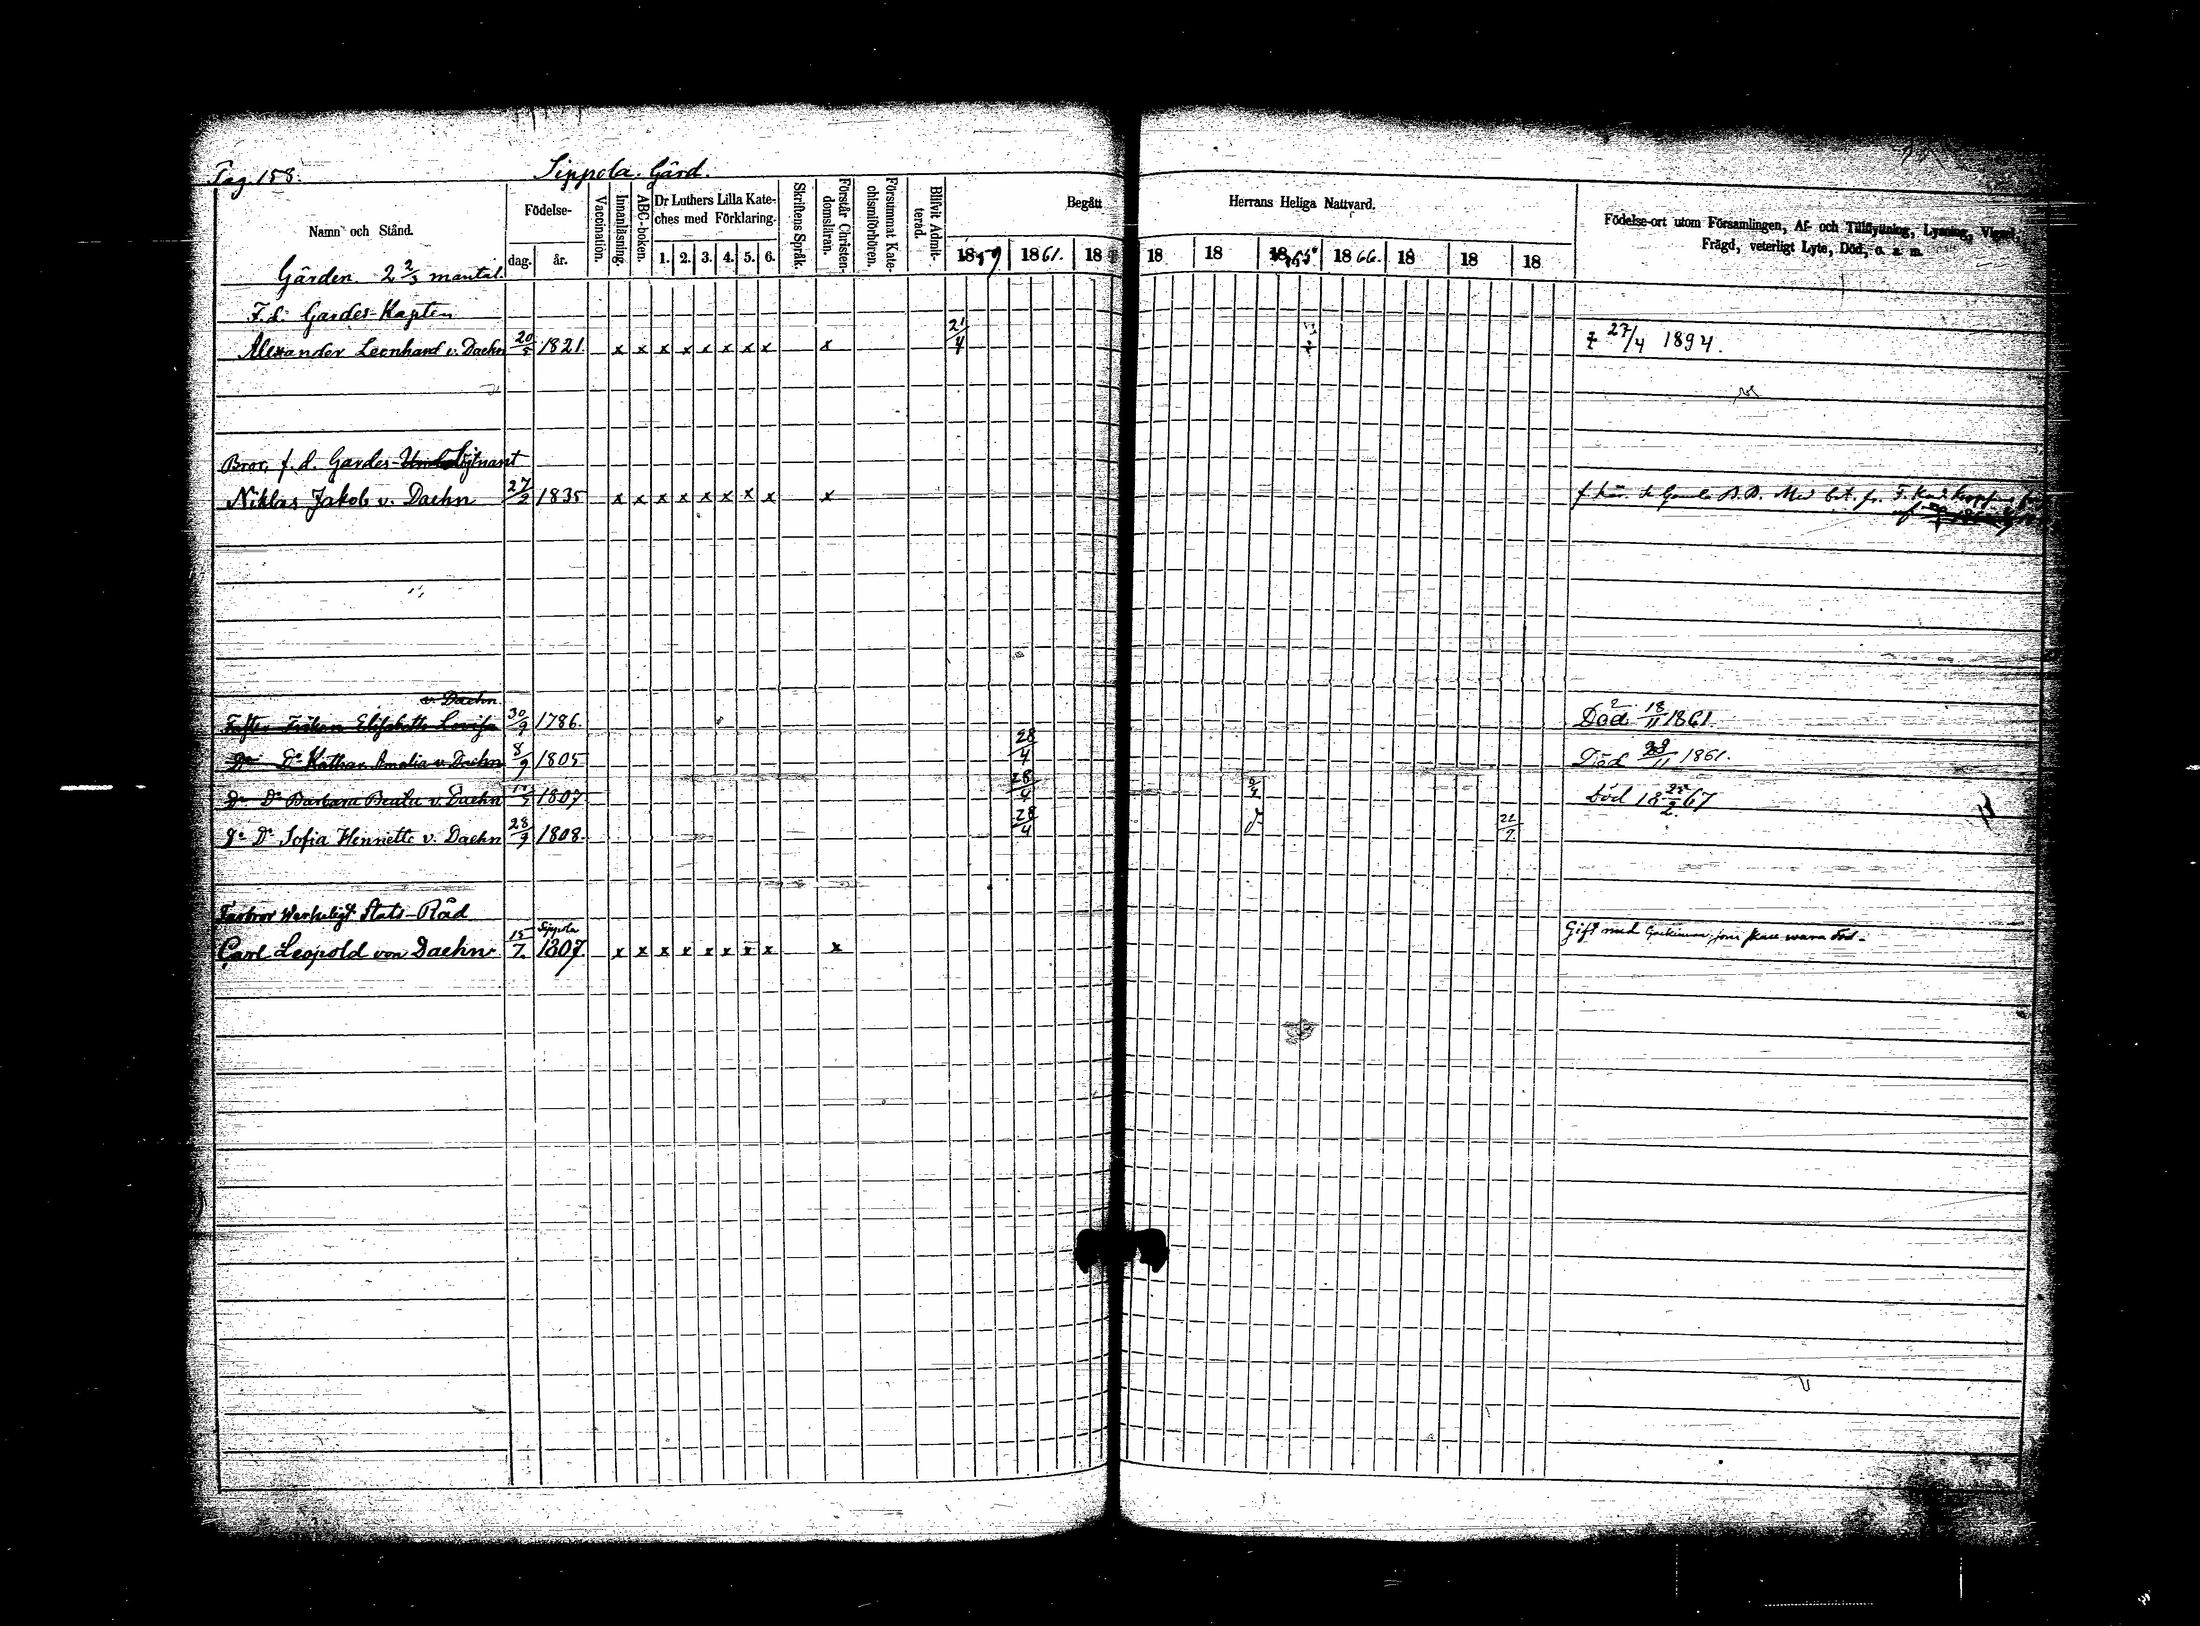 Pag. 158.
Sippola Gård.
Namn och Stånd.
Födelse-
dag.
år.
Vaccination.
Innanläsning.
ABC-boken.
Dr Luthers Lilla Kate-
ches med Förklaring.
1. 2. 3. 4. 5. 6.
Skriftens Språk.
Förstår Christen-
domsläran.
Försummat Kate-
chismiförhören.
Blifvit Admit-
terad.
Begått
Herrans Heliga Nattvard.
1859 1861. 18 18 18 1865 1866. 18 18 18
Födelse-ort utom Församlingen, Af- och Tillflyttning, Lysning, Vigsel,
Frägd, veterligt Lyte, Död, o. s. m.
Gården 2 2/3 mantal
F.d. Gardes-Kapten
Alexander Leonhard v. Daehn 20/5 1821. x x x x x x x x x 21/4 27/4 1894.
Bror, f. d. Gardes-
Niklas Jakob v. Daehn 27/2 1835 x x x x x x x x x
v. Daehn
Fröken Elisabeth Lovisa 30/9 1786. Död 18/11 1861.
Do Do Kathar. Amalia v. Daehn 8/9 1805 28/4 Död /11 1861.
Do Do Barbara Beata v. Daehn 1807 28/4 Död 18 /2 67
Do Do Sofia Henriette v. Daehn 28/9 1808. 28/4 22/7
Farbror Werkeligt Stats-Råd
Sippola
Carl Leopold von Daehn 15/7. 1807. x x x x x x x x x Gift med